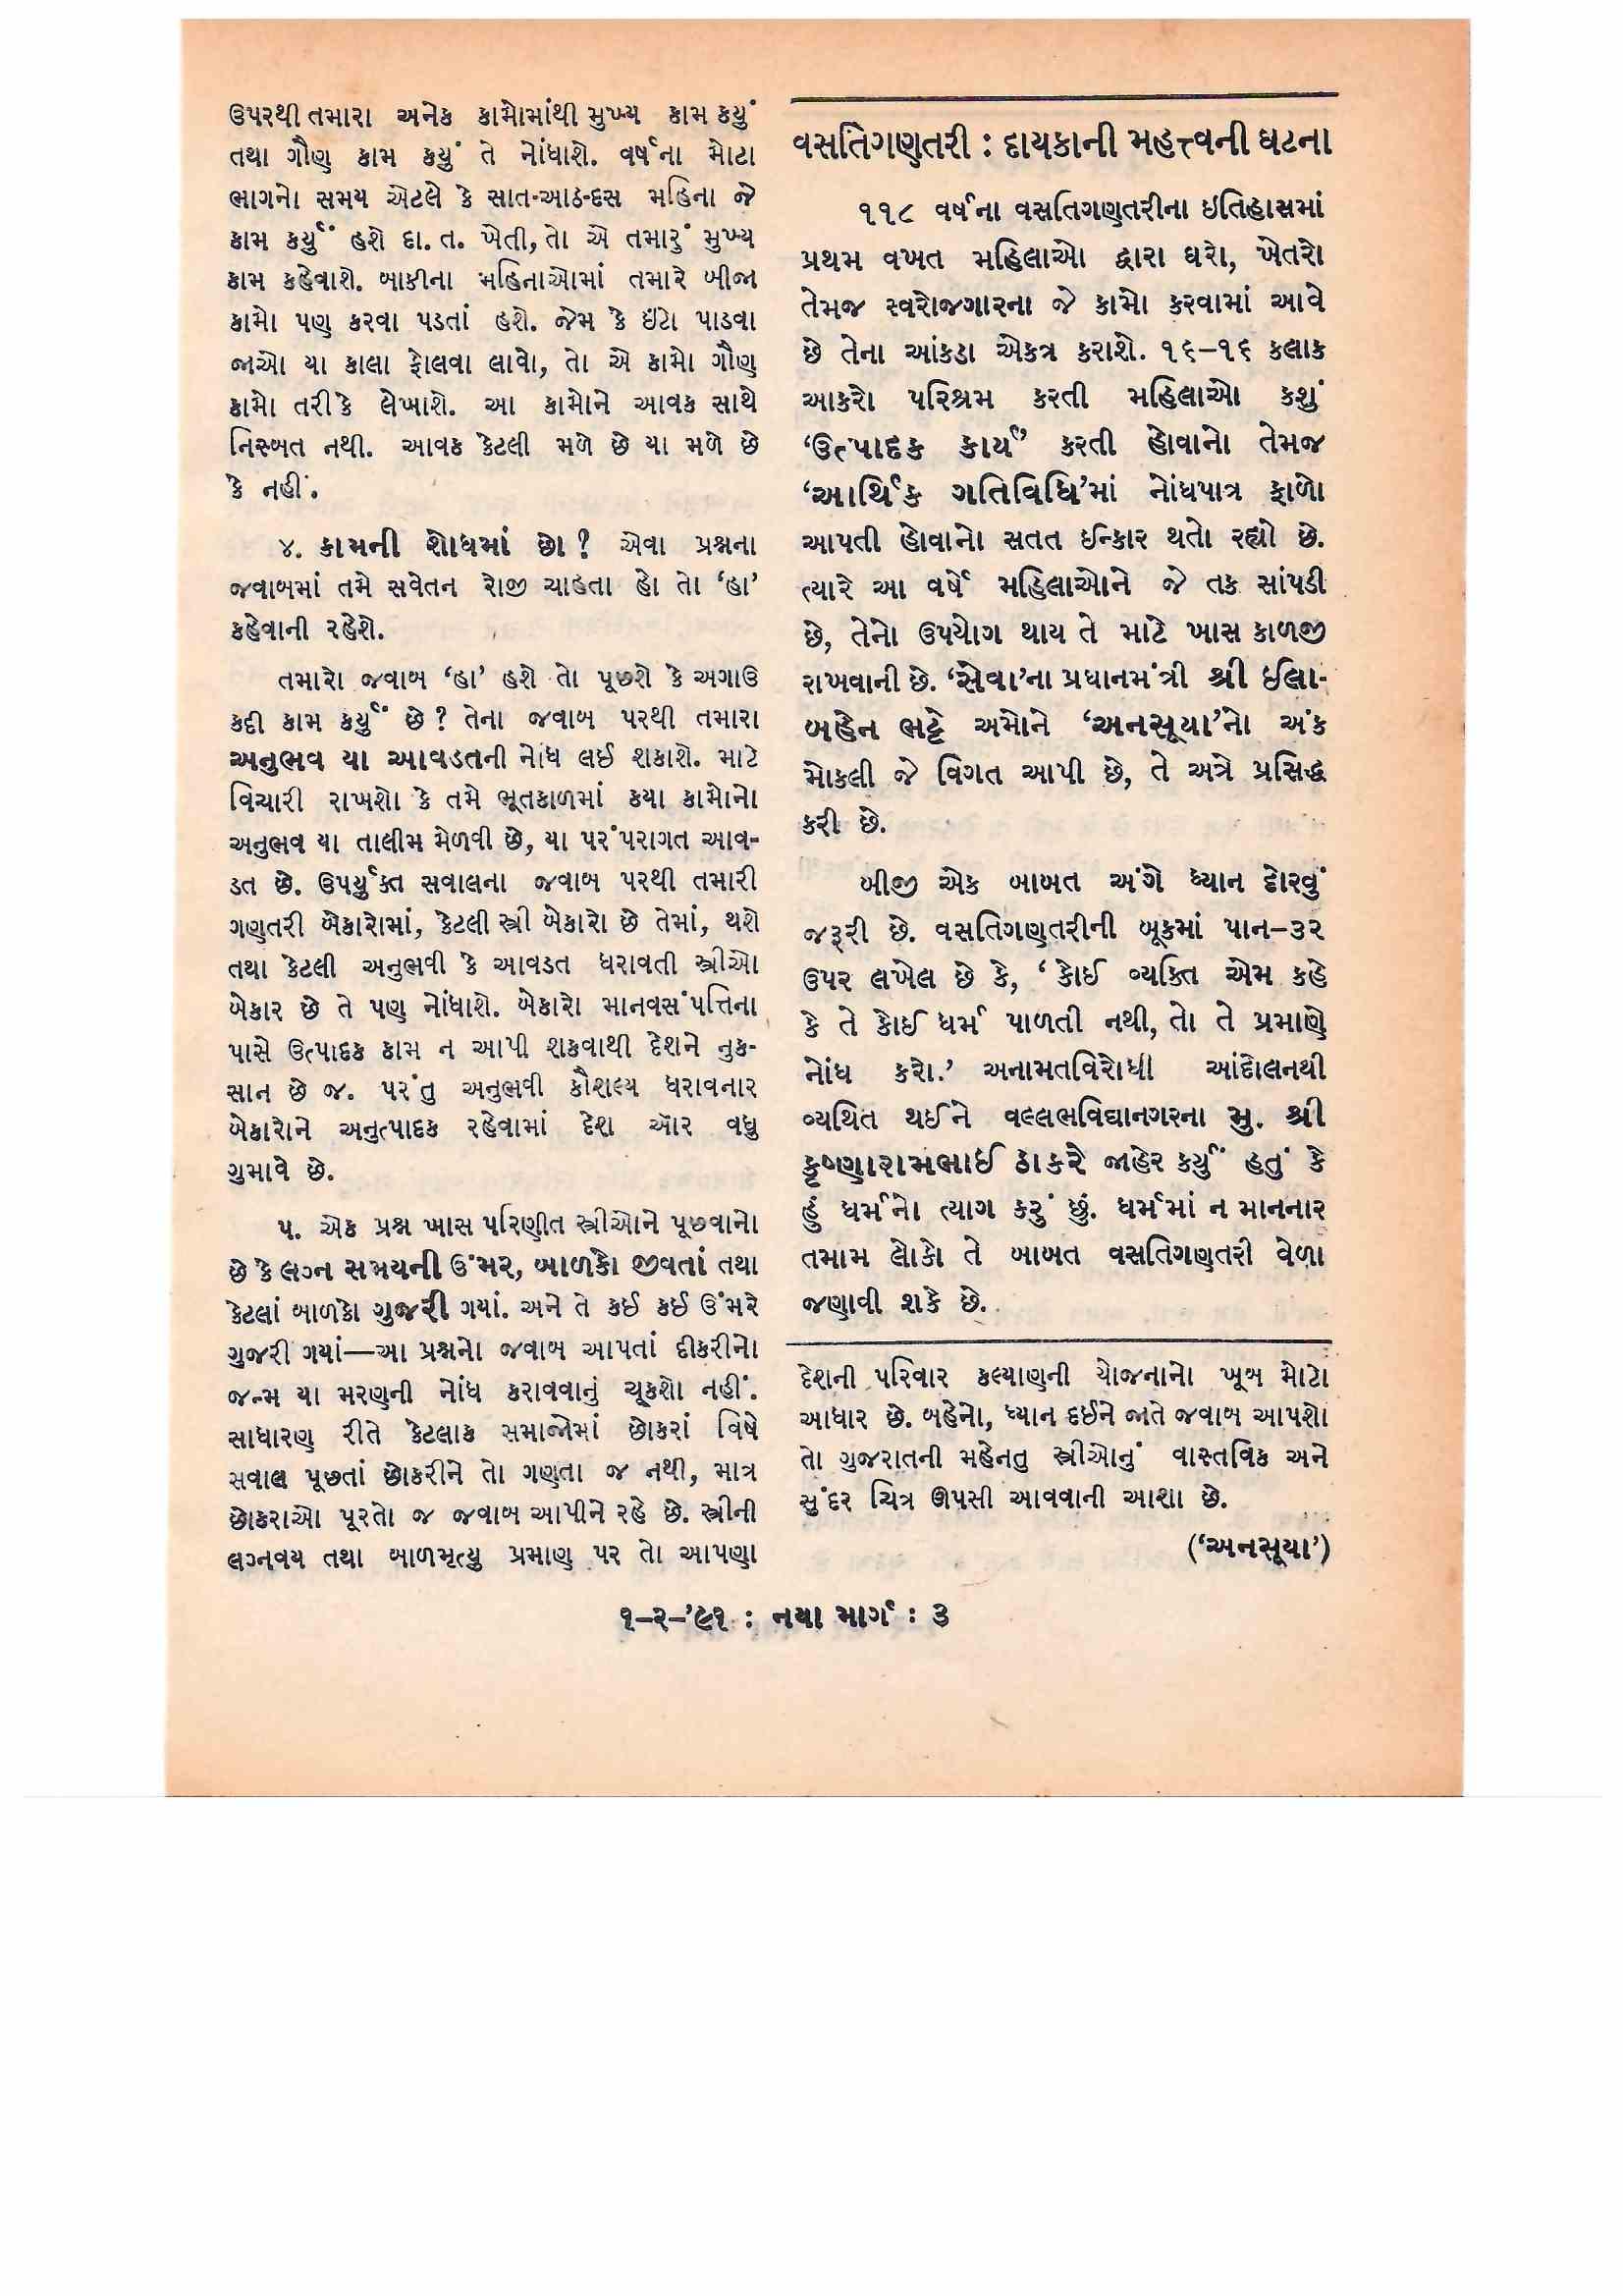 ઉપરથી તમારા અનેક કામોમાંથી મુખ્ય કામ કર્યું
તથા ગૌણ કામ કર્યું તે નોંધાશે. વર્ષના મોટા
ભાગનો સમય એટલે કે સાત-આઠ-દસ મહિના જે
કામ કર્યું હશે દા. ત. ખેતી, તો એ તમારું મુખ્ય
કામ કહેવાશે. બાકીના મહિનાઓમાં તમારે બીજા
કામો પણ કરવા પડતાં હશે. જેમ કે ઈંટો પાડવા
જાઓ યા કાલા ફોલવા લાવો, તો એ કામો ગૌણ
કામો તરીકે લેખાશે. આ કામોને આવક સાથે
નિસ્બત નથી. આવક કેટલી મળે છે યા મળે છે
કે નહીં.
૪. કામની શોધમાં છો ? એવા પ્રશ્નના
જવાબમાં તમે સવેતન રોજી ચાહતા હો તો ‘હા’
કહેવાની રહેશે.
તમારો જવાબ ‘હા’ હશે તો પૂછશે કે અગાઉ
કદી કામ કર્યું છે ? તેના જવાબ પરથી તમારા
અનુભવ યા આવડતની નોંધ લઈ શકાશે. માટે
વિચારી રાખશો કે તમે ભૂતકાળમાં કયા કામોનો
અનુભવ યા તાલીમ મેળવી છે, યા પરંપરાગત આવ-
ડત છે. ઉપર્યુક્ત સવાલના જવાબ પરથી તમારી
ગણતરી બેકારોમાં, કેટલી સ્ત્રી બેકારો છે તેમાં, થશે
તથા કેટલી અનુભવી કે આવડત ધરાવતી સ્ત્રીઓ
બેકાર છે તે પણ નોંધાશે. બેકારો માનવસંપત્તિના
પાસે ઉત્પાદક કામ ન આપી શકવાથી દેશને નુક-
સાન છે જ. પરંતુ અનુભવી કૌશલ્ય ધરાવનાર
બેકારોને અનુત્પાદક રહેવામાં દેશ ઑર વધુ
ગુમાવે છે.
૫. એક પ્રશ્ન ખાસ પરિણીત સ્ત્રીઓને પૂછવાનો
છે કે લગ્ન સમયની ઉંમર, બાળકો જીવતાં તથા
કેટલાં બાળકો ગુજરી ગયાં. અને તે કઈ કઈ ઉંમરે
ગુજરી ગયાં—આ પ્રશ્નનો જવાબ આપતાં દીકરીનો
જન્મ યા મરણની નોંધ કરાવવાનું ચૂકશો નહીં.
સાધારણ રીતે કેટલાક સમાજોમાં છોકરાં વિષે
સવાલ પૂછતાં છોકરીને તો ગણતા જ નથી, માત્ર
છોકરાઓ પૂરતો જ જવાબ આપીને રહે છે. સ્ત્રીની
લગ્નવય તથા બાળમૃત્યુ પ્રમાણ પર તો આપણા
વસતિગણતરી : દાયકાની મહત્ત્વની ઘટના
૧૧૮ વર્ષના વસતિગણતરીના ઇતિહાસમાં
પ્રથમ વખત મહિલાઓ દ્વારા ઘરો, ખેતરો
તેમજ સ્વરોજગારના જે કામો કરવામાં આવે
છે તેના આંકડા એકત્ર કરાશે. ૧૬–૧૬ કલાક
આકરો પરિશ્રમ કરતી મહિલાઓ કશું
‘ઉત્પાદક કાર્ય’ કરતી હોવાનો તેમજ
‘આર્થિક ગતિવિધિ’માં નોંધપાત્ર ફાળો
આપતી હોવાનો સતત ઈન્કાર થતો રહ્યો છે.
ત્યારે આ વર્ષે મહિલાઓને જે તક સાંપડી
છે, તેનો ઉપયોગ થાય તે માટે ખાસ કાળજી
રાખવાની છે. ‘સેવા’ના પ્રધાનમંત્રી શ્રી ઈલા-
બહેન ભટ્ટે અમોને ‘અનસૂયા’નો અંક
મોકલી જે વિગત આપી છે, તે અત્રે પ્રસિદ્ધ
કરી છે.
બીજી એક બાબત અંગે ધ્યાન દોરવું
જરૂરી છે. વસતિગણતરીની બૂકમાં પાન–૩૨
ઉપર લખેલ છે કે, ‘ કોઈ વ્યક્તિ એમ કહે
કે તે કોઈ ધર્મ પાળતી નથી, તો તે પ્રમાણે
નોંધ કરો.’ અનામતવિરોધી આંદોલનથી
વ્યથિત થઈને વલ્લભવિદ્યાનગરના મુ. શ્રી
કૃષ્ણારામભાઈ ઠાકરે જાહેર કર્યું હતું કે
હું ધર્મનો ત્યાગ કરું છું. ધર્મમાં ન માનનાર
તમામ લોકો તે બાબત વસતિગણતરી વેળા
જણાવી શકે છે.
દેશની પરિવાર કલ્યાણની યોજનાનો ખૂબ મોટો
આધાર છે. બહેનો, ધ્યાન દઈને જાતે જવાબ આપશો
તો ગુજરાતની મહેનતુ સ્ત્રીઓનું વાસ્તવિક અને
સુંદર ચિત્ર ઊપસી આવવાની આશા છે.
(‘અનસૂયા’)
૧–૨–’૯૧ : નયા માર્ગ : ૩